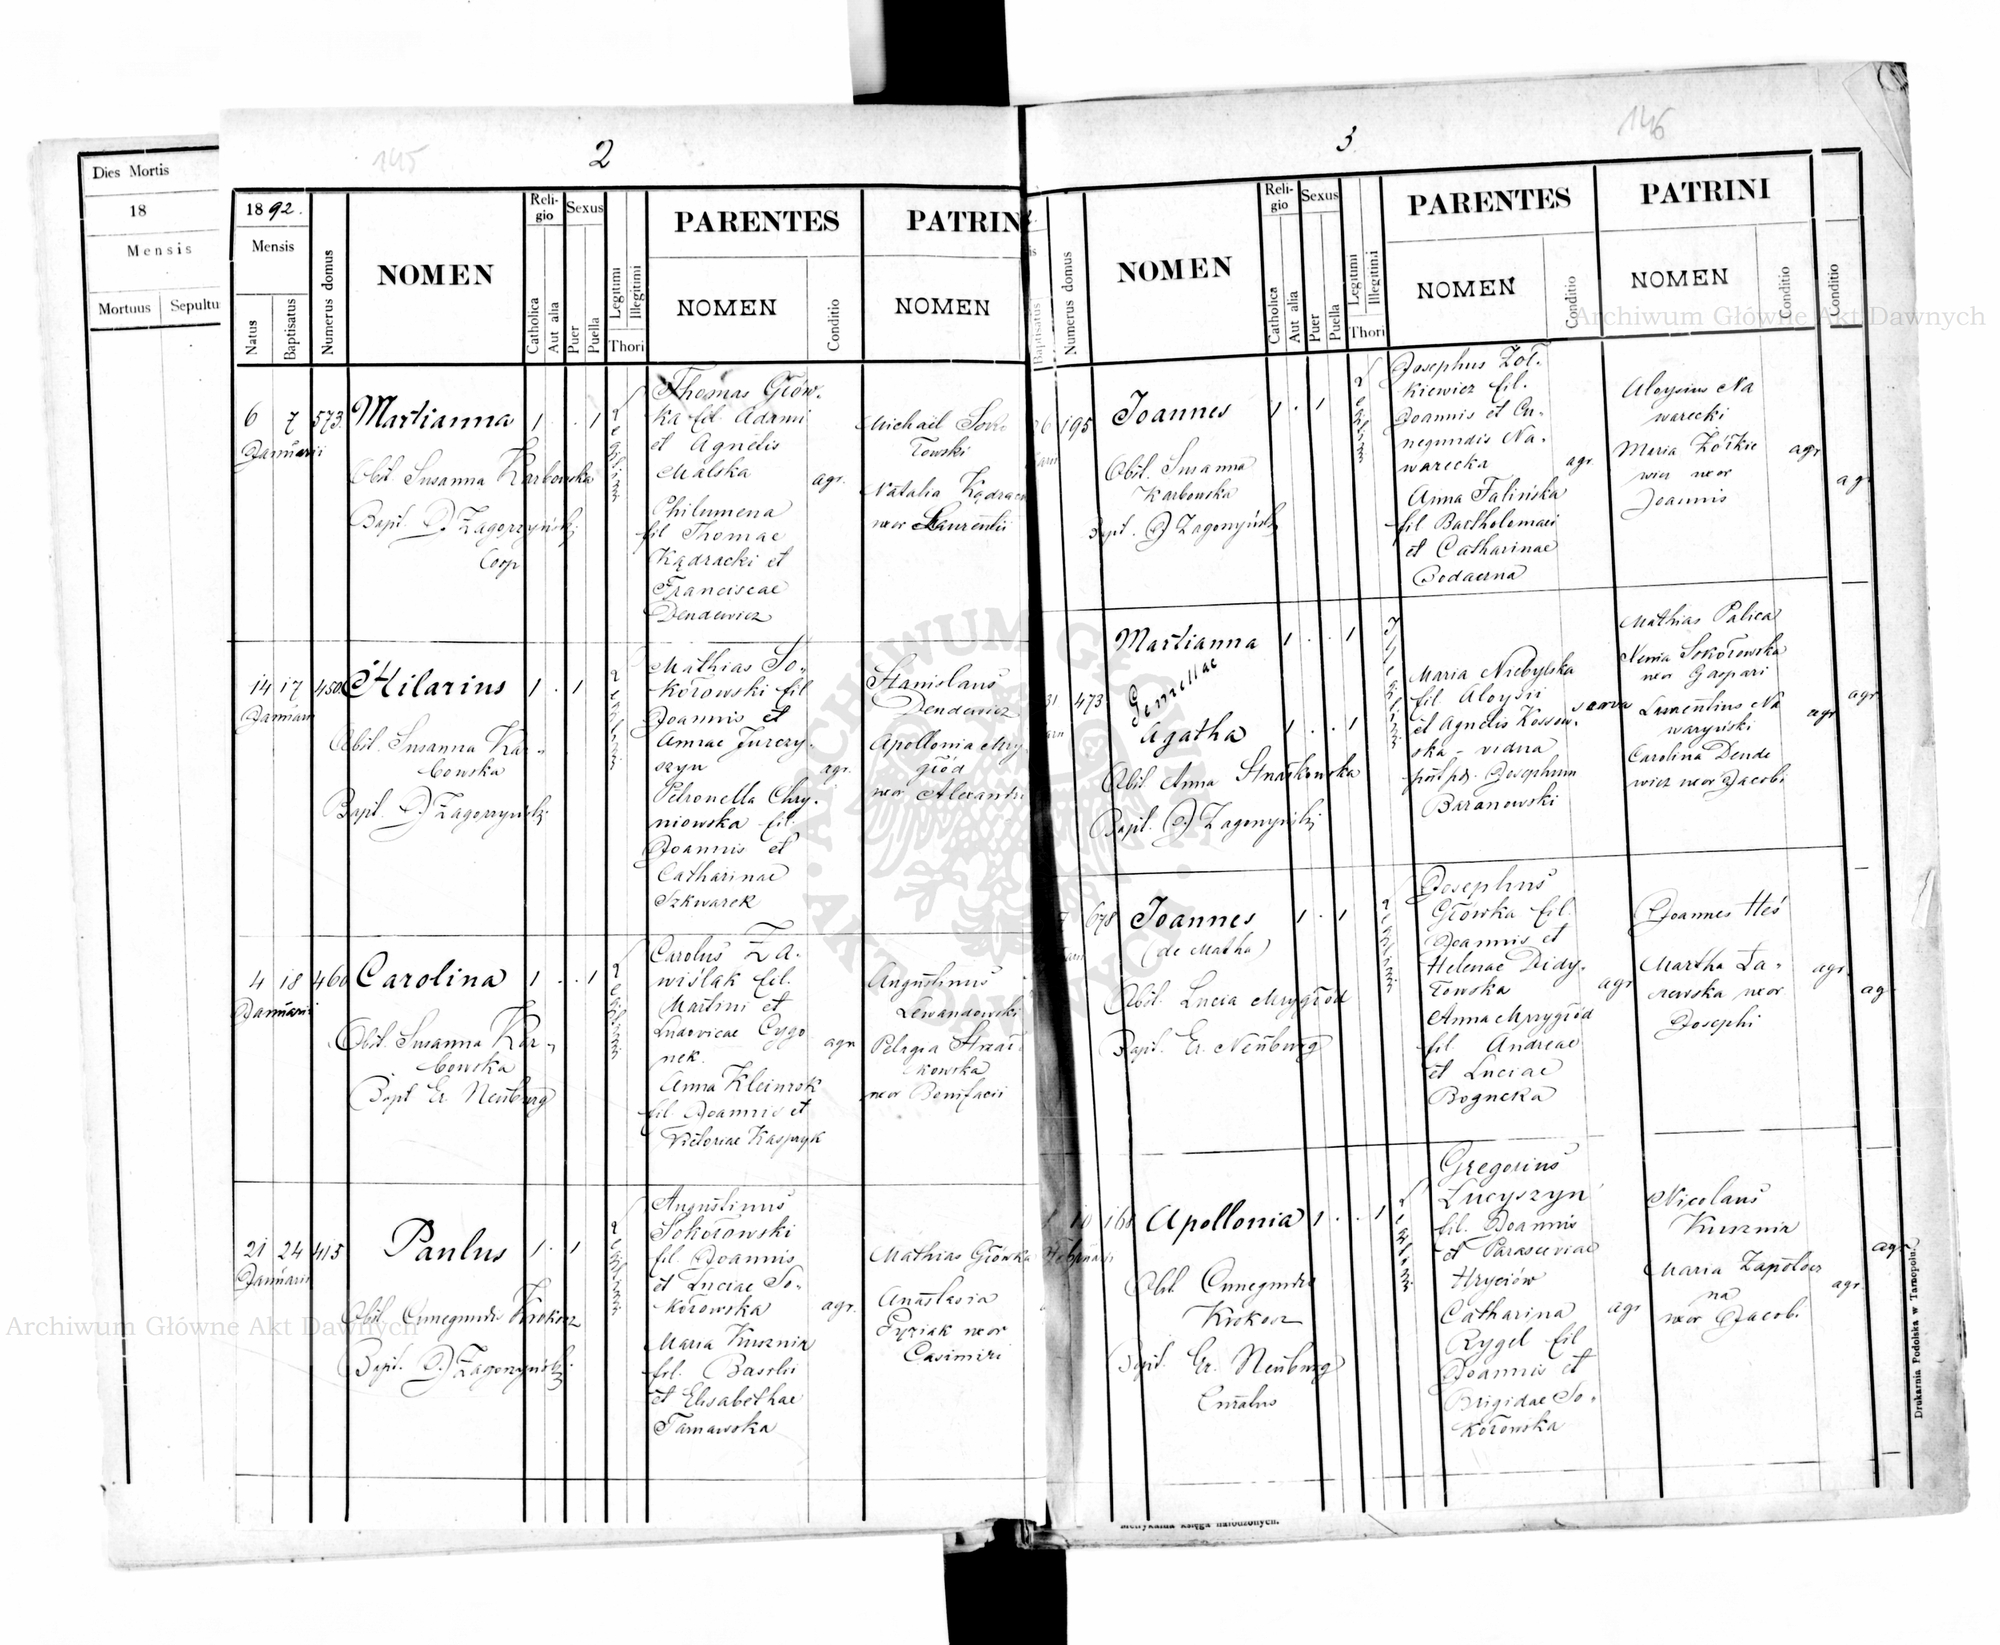 145
2
Dies Mortis
18
Mensis
Mortuus Sepultu
1892.
Mensis
Natus
Baptisatus
Numerus domus
NOMEN
Reli-
gio
Catholica
Aut alia
Sexus
Puer
Puella
Legitimi
Illegitimi
Thori
PARENTES
NOMEN
Conditio
PATRIN
NOMEN
6 7 573
Januarii
Martianna
1 . . 1
Obst. Susanna Karbowska
Bapt. D Zagorzyński
Coop
Thomas Głów-
ka fil. Adami
et Agnetis
Malska
Philumena
fil Thomae
Kądracki et
Franciscae
Dendewicz
agr.
Michael Soko
łowski
Natalia Kądrac
uxor Laurentii
14 17 450
Januarii
Hilarius
1 . 1
Obst. Susanna Kar-
bowska
Bapt. D Zagorzyński
Mathias So-
kołowski fil
Joannis et
Annae Jurczy-
szyn
Petronella Chry-
niowska fil.
Joannis et
Catharinae
Szkwarek
agr.
Stanislaus
Dendewicz
Apollonia Mry
głód
uxor Alexandri
4 18 460
Januarii
Carolina
1 . . 1
Obst. Susanna Kar-
bowska
Bapt Er. Neuburg
Carolus Za-
wiślak fil.
Martini et
Ludovicae Cygo
nek.
Anna Kleinrok
fil. Joannis et
Victoriae Kasprzyk
agr
Augustinus
Lewandowski
Pelagia
kowska
uxor Bonifacii
21 24 415
Januarii
Paulus
1 . 1
Obst. Cunegundis Krokosz
Bapt. D Zagorzyński
Augustinus
Sokołowski
fil. Joannis
et Luciae So-
kołowska
Maria Kusznir
fil. Basilii
et Elisabethae
Tarnawska
agr.
Mathias Główka
Anastasia
Pyziak uxor
Casimiri
146
3
Baptisatus
Numerus domus
NOMEN
Reli-
gio
Catholica
Aut alia
Sexus
Puer
Puella
Legitimi
Illegitimi
Thori
PARENTES
NOMEN
Conditio
PATRINI
NOMEN
Conditio
Conditio
195
Joannes
1 . 1
Obst. Susanna
Karbowska
Bapt. D Zagorzyński
Josephus Żół-
kiewicz fil.
Joannis et Cu-
negundis Na-
warecka
Anna Falińska
fil Bartholomaei
et Catharinae
Bodaerna
agr.
Aloysius Na
warecki
Maria Żółkie
wicz uxor
Joannis
agr
31 473
Martianna
1 . . 1
Gemellae
Agatha
1 . . 1
Obst Anna
Bapt. D Zagorzyński
Maria Niebylska
fil Aloysii
et Agnetis Kossow-
ska - vidua
Josephum
Baranowski
serva
Mathias Palica
Xenia Sokołowska
uxor Gaspari
Laurentius Na
waryński
Carolina Dende
wicz uxor Jacobi
agr
agr
678
Joannes
(de Matha)
1 . 1
Obst. Lucia Mrygłód
Bapt. Er. Neuburg
Josephus
Główka fil.
Joannis et
Helenae Didy-
łowska
Anna Mrygłód
fil Andreae
et Luciae
Bognska
agr
Joannes Heś
Martha
uxor
Josephi
agr.
10 168
Februarii
Apollonia
1 . . 1
Obst. Cunegundis
Krokosz
Bapt. Er. Neuburg
Curatus
Gregorius
Łucyszyn
fil. Joannis
et Parasceviae
Hryciów
Catharina
Rygel fil
Joannis et
Brigidae So-
kołowska
agr
Nicolaus
Kusznir
Maria
na
uxor Jacobi
agr.
agr
Drukarnia Podolska w Tarnopolu.
Metrykalna księga narodzonych.
Archiwum Główne Akt Dawnych
Archiwum Główne Akt Dawnych